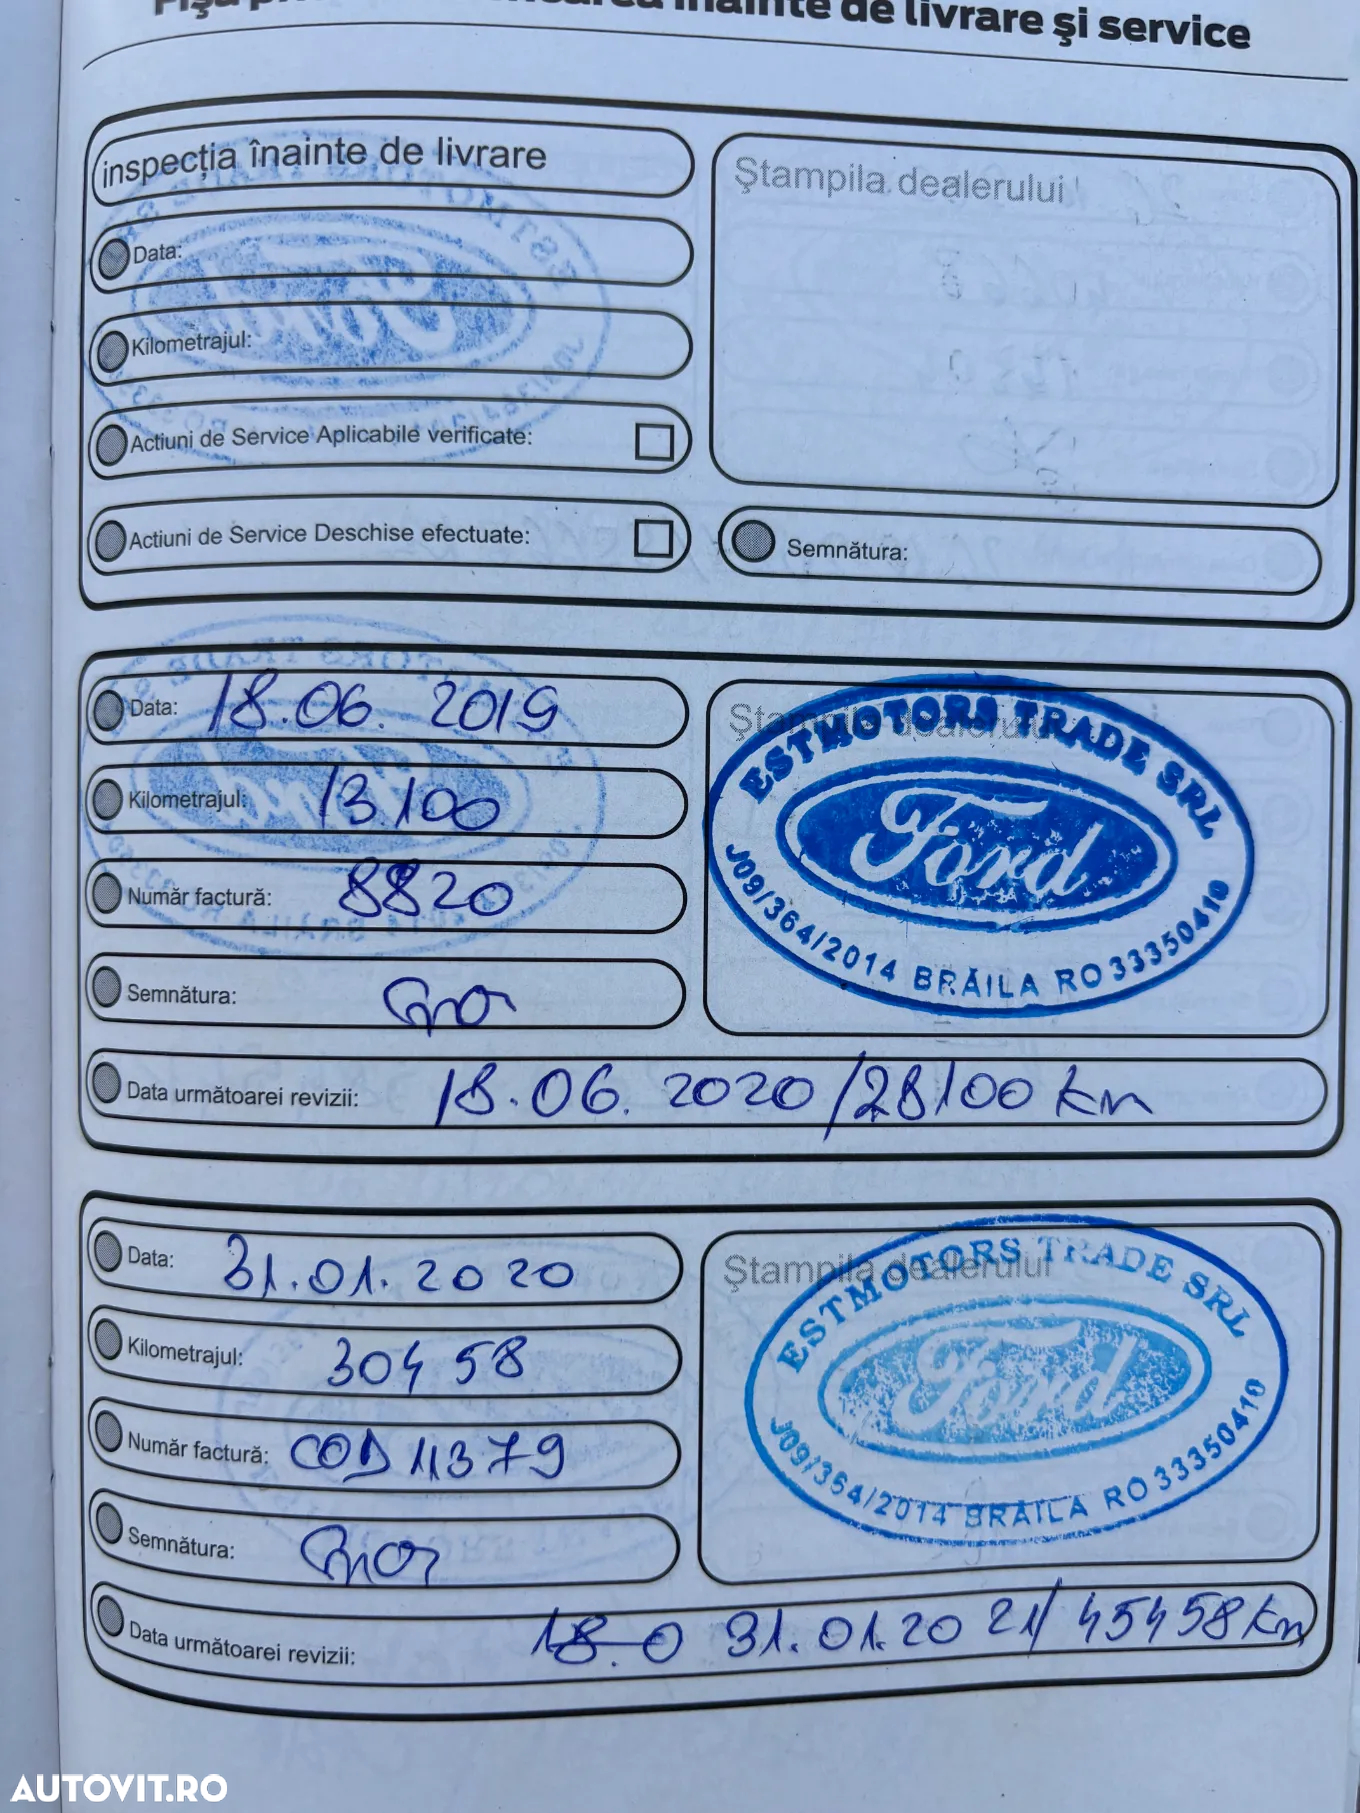 înainte de livrare şi service
inspecția înainte de livrare
Ştampila dealerului
Data:
Kilometrajul:
Actiuni de Service Aplicabile verificate:
Actiuni de Service Deschise efectuate:
Semnătura:
Data: 18.06.2019
Ştampila dealerului
ESTMOTORS TRADE SRL
Ford
J09/364/2014 BRĂILA RO 33350410
Kilometrajul: 13100
Număr factură: 8820
Semnătura:
Data următoarei revizii: 18.06.2020/28100 km
Data: 31.01.2020
Ştampila dealerului
ESTMOTORS TRADE SRL
Ford
J09/364/2014 BRĂILA RO 33350410
Kilometrajul: 30458
Număr factură: COD 11379
Semnătura:
Data următoarei revizii: 18.0 31.01.2021/45458 km
AUTOVIT.RO